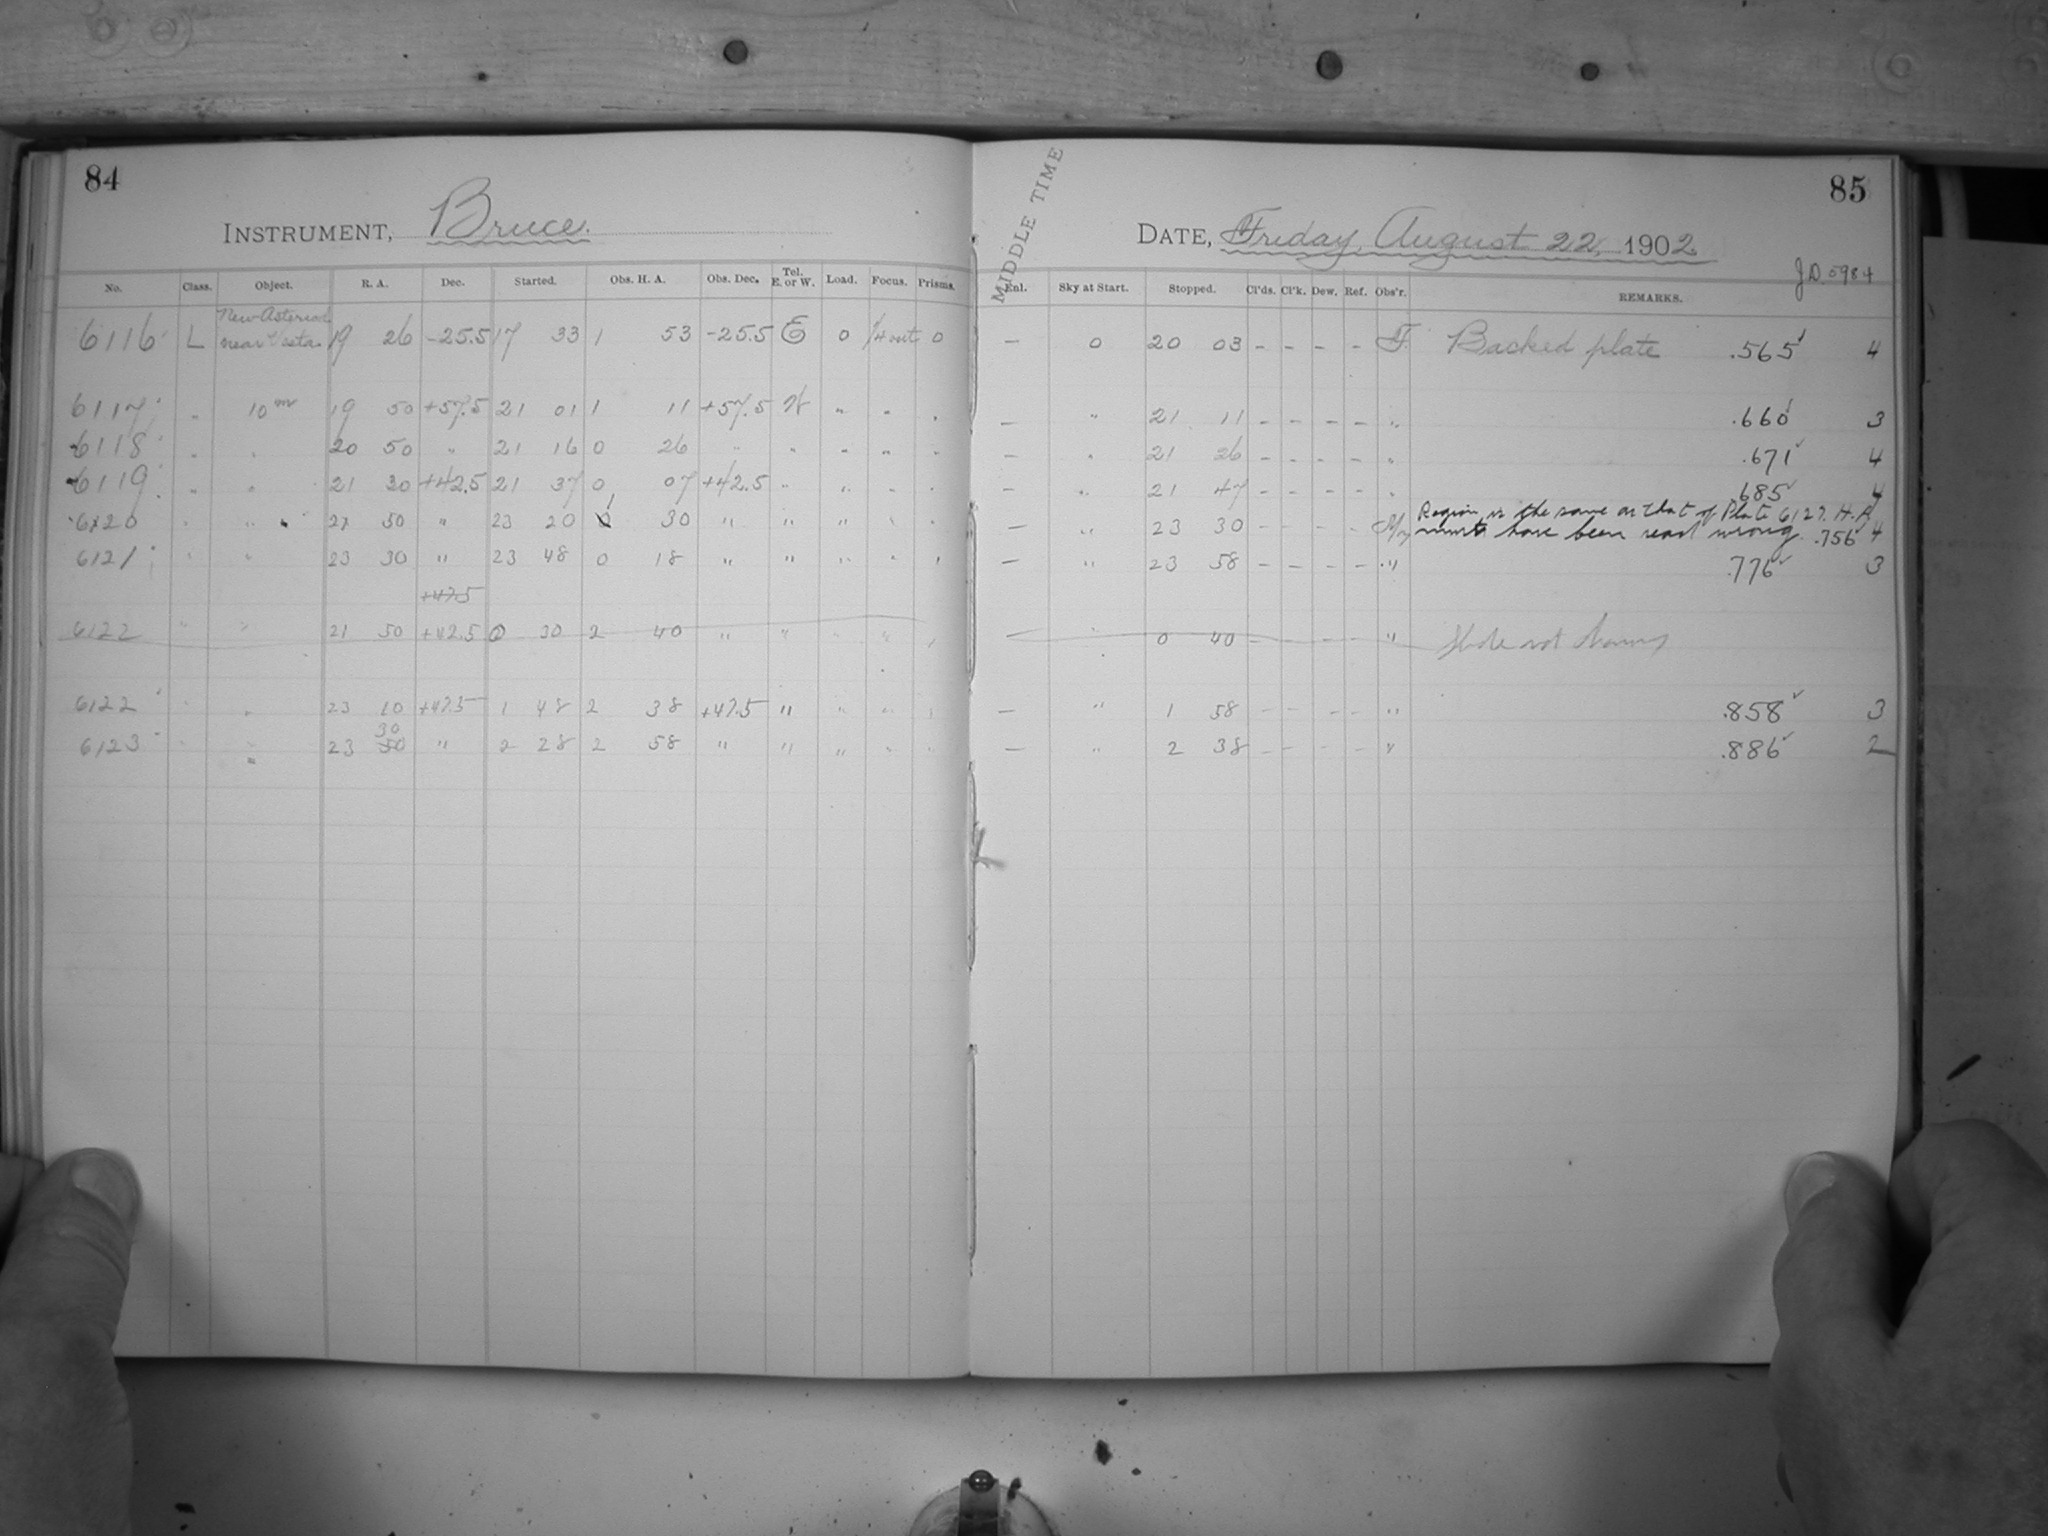 84
INSTRUMENT, Bruce.
No. Class. Object. R. A. Dec. Started. Obs. H. A. Obs. Dec. Tel. E. or W. Load. Focus. Prisms.
6116 L New Asteroid near Vesta 19 26 -25.5 17 33 1 53 -25.5 E 0 1/4 out 0
6117 " 10m 19 50 +57.5 21 01 1 11 +57.5 W " " "
6118 " " 20 50 " 21 16 0 26 " " " " "
6119 " " 21 30 +42.5 21 37 0 07 +42.5 " " " "
6120 " " 50 " 23 20 1 30 " " " " "
6121 " " 23 30 " 23 48 0 18 " " " " "
+47.5
6122 " " 21 50 +42.5 0 30 2 40 " " " " "
6122 " " 23 10 +47.5 1 48 2 38 +47.5 " " " "
30
6123 " " 23 50 " 2 28 2 58 " " " " "
85
MIDDLE TIME
DATE, Friday, August 22, 1902
J.D. 5984
Enl. Sky at Start. Stopped. Cl'ds. Cl'k. Dew. Ref. Obs'r. REMARKS.
– 0 20 03 – – – – F. Backed plate .565 4
– " 21 11 – – – – " .660 3
– " 21 26 – – – – " .671 4
– " 21 47 – – – – " .685 4
Region is the same as that of Plate 6127. H.A.
– " 23 30 – – – – must have been read wrong. .756 4
– " 23 58 – – – – " .776 3
– " 0 40 – – – – " Slide not drawn
– " 1 58 – – – – " .858 3
– " 2 38 – – – – " .886 2